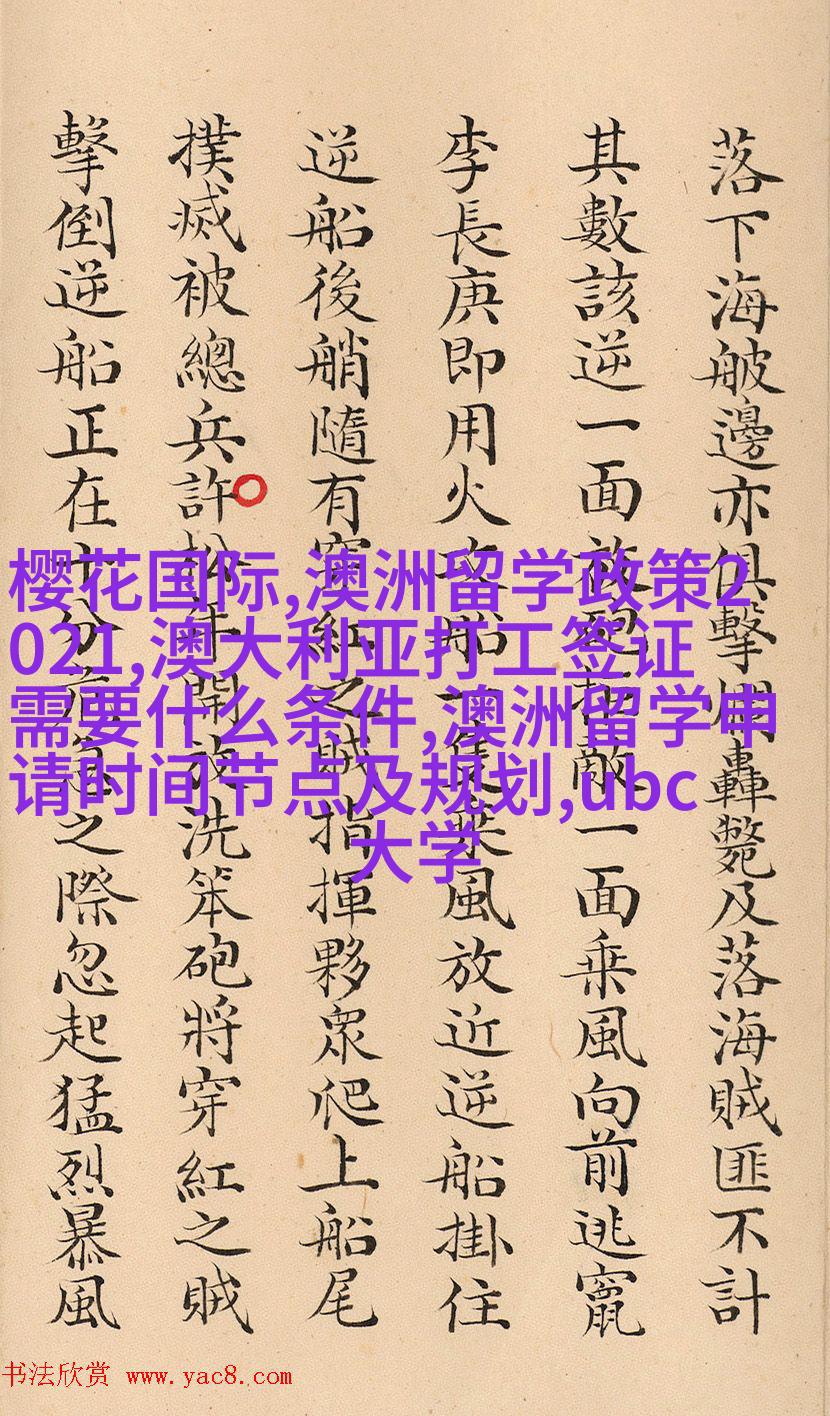 落下海邊亦俱擊爛轟斃及落海賊匪不計
其數該逆一面放砲拒敵一面乘風向前逃竄
李長庚即用火攻船一隻乘風放近逆船掛住
逆船後艄隨有穿紅之賊指揮夥眾爬上船尾
撲滅被總兵許松年開放洗笨砲將穿紅之賊
擊倒逆船正在十分危急之際忽起猛烈暴風
樱花国际,澳洲留学政策2
021,澳大利亚打工签证
需要什么条件,澳洲留学申
请时间节点及规划,ubc
大学
书法欣赏 www.yac8.com